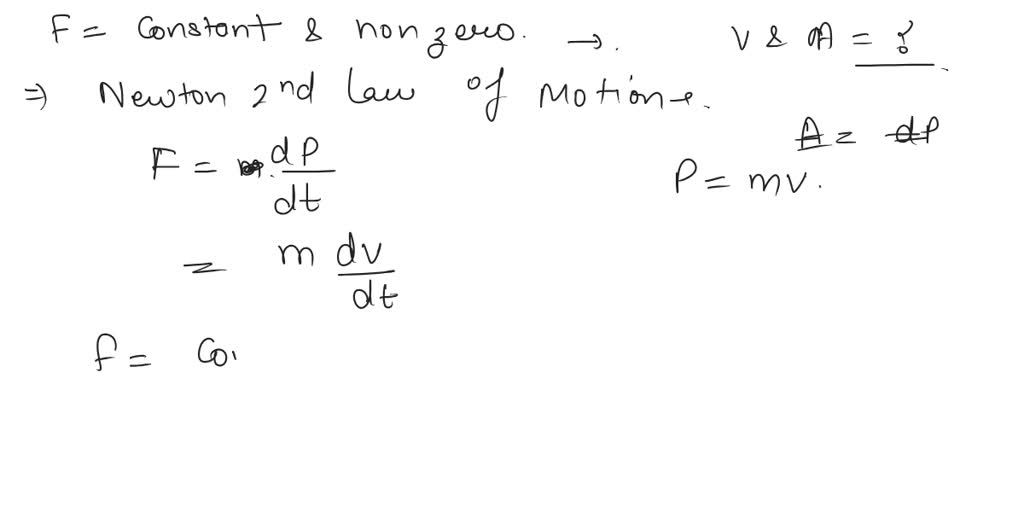 F = Constant & non zero. → . V & A = ?
⇒ Newton 2nd law of Motion.
A = dP
F = dP/dt
P = mv.
= m dv/dt
f = Co